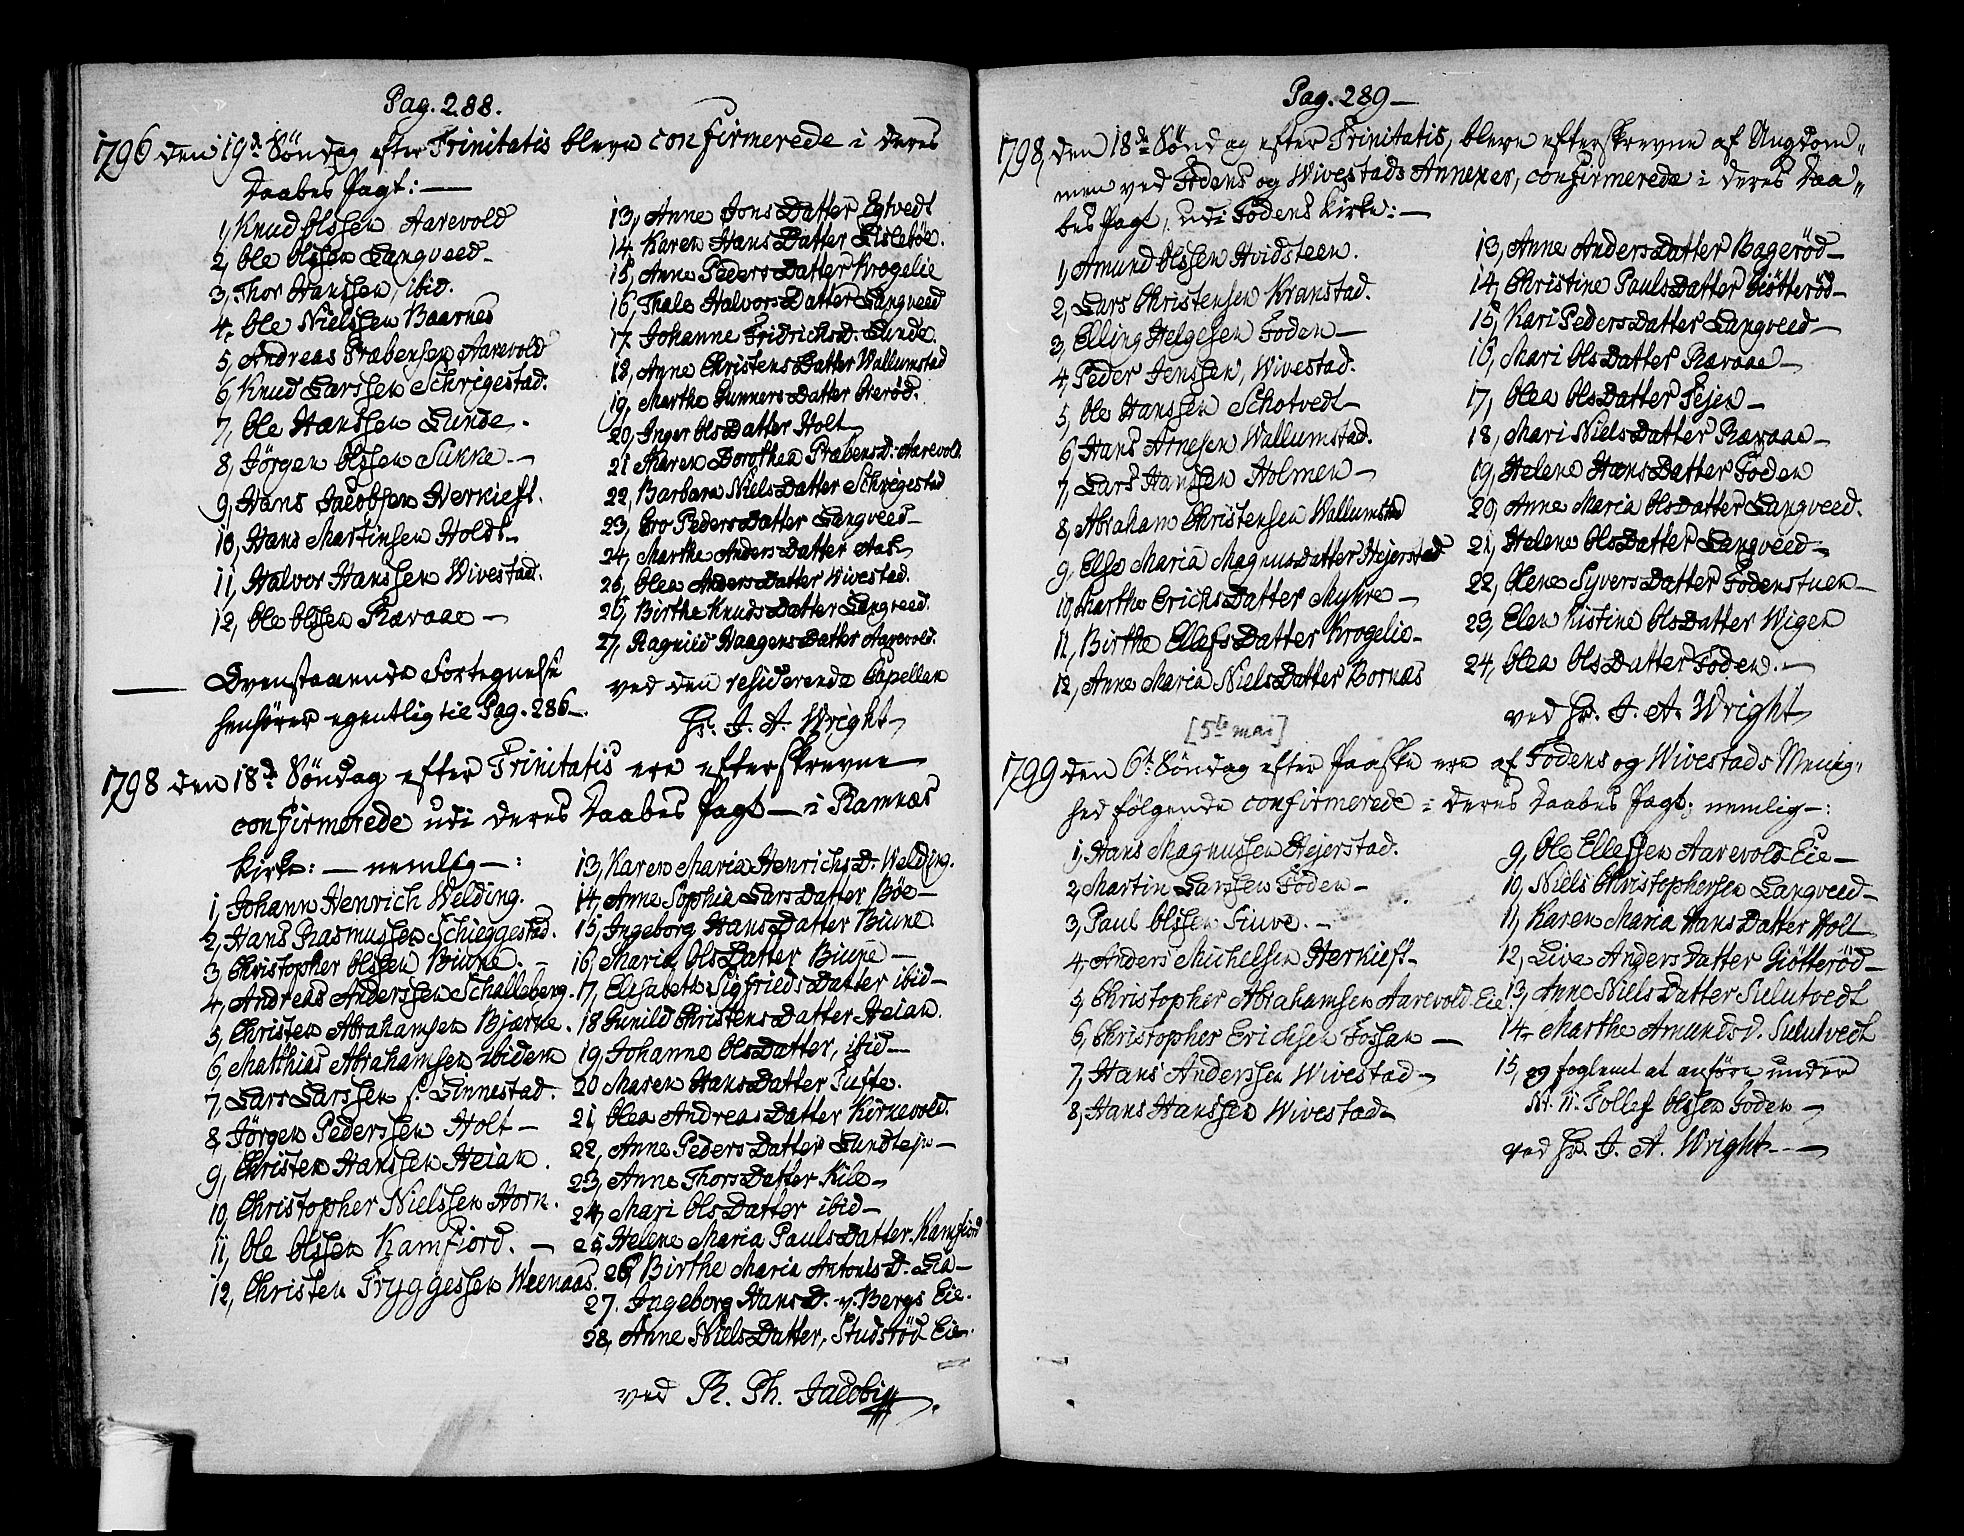 Pag. 288.
1796 den 19de Söndag efter Trinitatis bleve confirmerede i deres
Daabes Pagt: —
1, Knud Olssen Aarevold
2, Ole Olssen Langveed
3, Thor Hanssen, ibid.
4, Ole Nielssen Baarnes
5, Andreas Præbensen Aarevold
6, Knud Larssen Schrigestad.
7, Ole Hanssen Lunde.
8, Jörgen Olssen Sukke. —
9, Hans Jacobsen Herkieft.
10, Hans Martinsen Holdt
11, Halvor Hanssen Wivestad.
12, Ole Olssen Rævaae —
13, Anne Jons Datter Egtvedt
14, Karen Hans Datter Lisleböe.
15, Anne Peders Datter Krogelie
16, Thale Halvors Datter Langveed
17, Johanne Fridrichs D. Lunde.
18, Anne Christens Datter Wallumstad
19, Marthe Gunners Datter Overöd.
20, Inger Ols Datter Holt
21 Maren Dorothea Præbens D. Aarevold.
22, Barbara Niels Datter Schrigestad
23, Gro Peders Datter Langveed —
24, Marthe Anders Datter Aas —
25, Olea Anders Datter Wivestad.
26, Birthe Knuds Datter Langveed.
27, Ragnild Haagens Datter Aarevold.
ved den residerende Capellan
Hr. J. A. Wright
— Ovenstaaende Fortegnelse
henhörer egentlig til Pag. 286 —
1798 den 18de Söndag efter Trinitatis ere efterskrevne
confirmerede udi deres Daabes Pagt — i Ramnæs
Kirke: — nemlig —:
1, Johann Henrich Welding.
2, Hans Rasmussen Schieggestad.
3, Christopher Olssen Biune. —
4, Andreas Anderssen Schalleberg.
5, Christen Abrahamsen Bjærke.
6, Matthias Abrahamsen ibidem
7, Lars Larssen s. Linnestad.
8, Jörgen Pederssen Holt —
9, Christen Hanssen Heian.
10, Christopher Nielssen Horn.
11, Ole Olssen Kamfiord. —
12, Christen Tryggessen Weenaas.
13, Karen Maria Henrichs D. Welding.
14, Anne Sophia Lars Datter Böe —
15, Ingeborg Hans Datter Biune.
16, Maria Ols Datter Biune —
17, Elisabeth Sigfrieds Datter ibid —
18 Gunild Christens Datter Heian.
19, Johanne Ols Datter, ibid —
20 Maren Hans Datter Tufte.
21, Olea Andreas Datter Kirkevold.
22, Anne Peders Datter Lundtejn —
23, Anne Thors Datter Kile —
24, Mari Ols Datter ibid —
25, Helene Maria Pauls Datter Kamfiord
26, Birthe Maria Antonis D. Lia —
27. Ingeborg Hans D. v. Bergs Eie.
28, Anne Niels Datter, Studsröd Eie.
ved R. Ph. Jacobi
Pag. 289 —
1798, den 18de Söndag efter Trinitatis, bleve efterskrevne af Ungdom„
men ved Fodens og Wivestads Annexer, confirmerede i deres Daa„
bes Pagt, udi Fodens Kirke: —
1, Amund Olssen Hvidsteen.
2, Lars Christensen Kranstad.
3, Elling Helgesen Foden —
4, Peder Jenssen, Wivestad.
5, Ole Hanssen Schotvedt
6, Hans Arnesen Wallumstad.
7, Lars Hanssen Holmen —
8, Abraham Christensen Wallumstad
9, Else Maria Magnus Datter Hejerstad
10, Marthe Erichs Datter Myhre —
11, Birthe Ellefs Datter Krogelie —
12, Anne Maria Niels Datter Bornæs
13, Anne Anders Datter Bageröd —
14, Christine Pauls Datter Giötteröd —
15, Kari Peders Datter Langveed —
16, Mari Ols Datter Rævaae —
17, Olea Ols Datter Fejen —
18, Mari Niels Datter Rævaae —
19, Helene Hans Datter Foden
20, Anne Maria Ols Datter Langveed.
21, Helene Ols Datter Langveed —
22, Olene Syvers Datter Fodenstuen —
23, Elen Kistine Ols Datter Wigen
24, Olea Ols Datter Foden. —
ved Hr. J. A. Wright
[5te mai]
1799 den 6te Söndag efter Paaske ere af Fodens og Wivestads Menig„
hed fölgende confirmerede i deres Daabes Pagt; nemlig —:
1, Hans Magnussen Hejerstad.
2, Martin Larssen Foden —
3, Paul Olssen Fiuve. —
4, Anders Michelsen Herkieft —
5, Christopher Abrahamsen Aarevold-Eie.
6, Christopher Erichsen Fossan —
7, Hans Anderssen Wivestad —
8, Hans Hanssen Wivestad —
9, Ole Ellefssen Aarevold-Eie —
10, Niels Christophersen Langveed —
11, Karen Maria Hans Datter Holt
12, Live Anders Datter Giötteröd —
13, Anne Niels Datter Sulutvedt
14, Marthe Amunds d. Sulutvedt
15, og foglemt at anföre under
Nr. 11. Tollef Olssen Foden —
ved Hr. J. A. Wright —